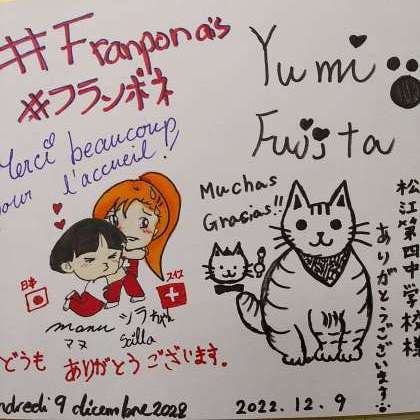 #Franponais
#フランポネ
Merci beaucoup
pour l'accueil!!
日本
スイス
manu
マヌ
シラちゃん
Scilla
どうも ありがとう ございます。
ndredi 9 dicembre 2022
Yumi
Fujita
Muchas
Gracias!!
松江第四小学校様
ありがとうございます
2022.12.9